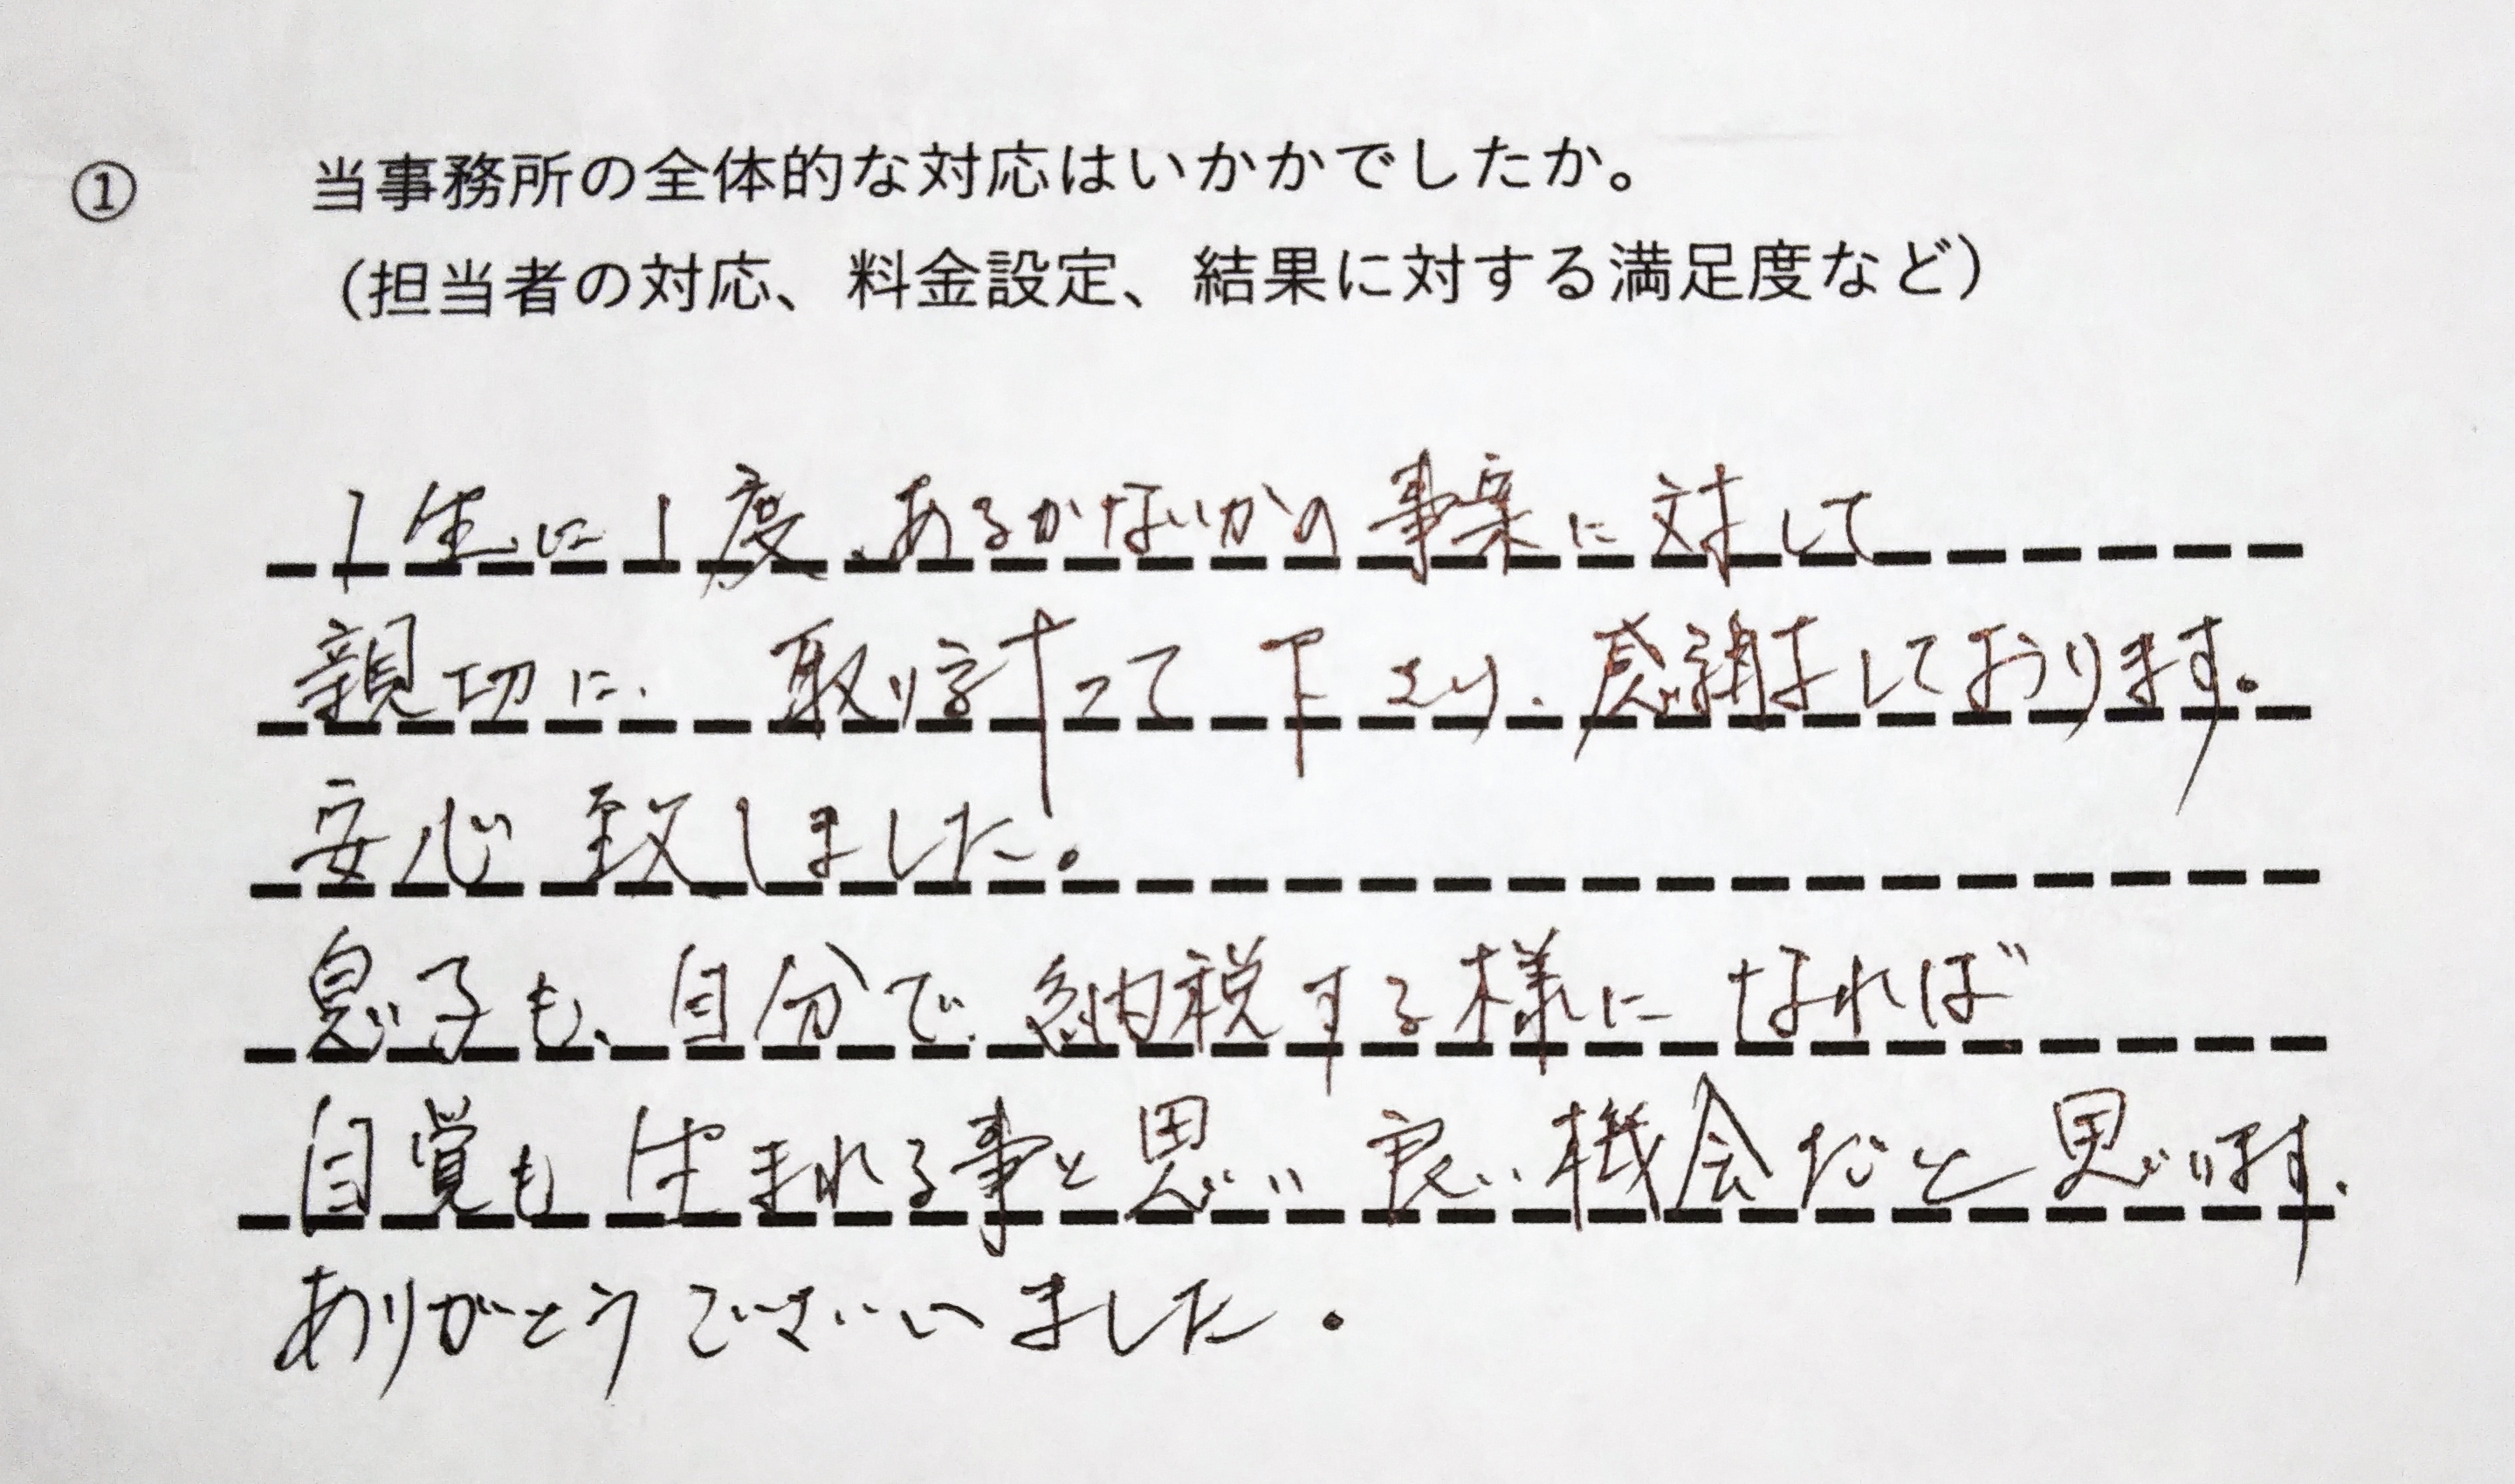 ① 当事務所の全体的な対応はいかかでしたか。
（担当者の対応、料金設定、結果に対する満足度など）
1生に1度、あるかないかの事案に対して
親切に、取り計って下さり、感謝しております。
安心致しました。
息子も、自分で、納税する様になれば
自覚も生まれる事と思い良い機会だと思います。
ありがとうございました。